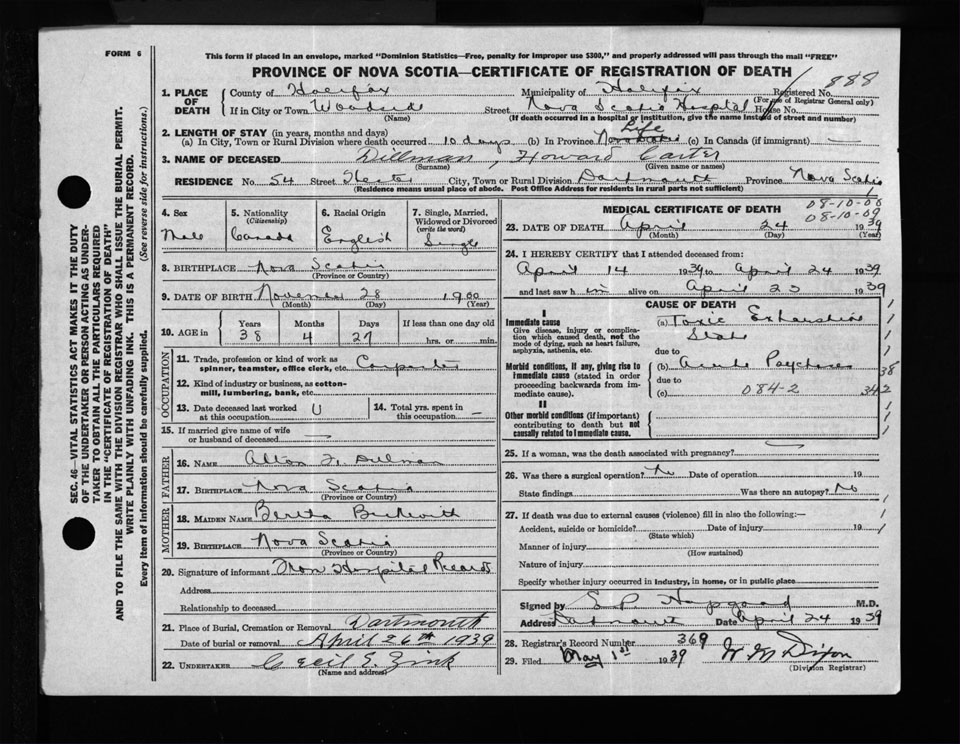 FORM 6
This form if placed in an envelope, marked "Dominion Statistics—Free, penalty for improper use $300," and properly addressed will pass through the mail "FREE"
PROVINCE OF NOVA SCOTIA—CERTIFICATE OF REGISTRATION OF DEATH
888
1. PLACE OF DEATH
County of Halifax Municipality of Halifax Registered No.
(For use of Registrar General only)
If in City or Town Woodside Street Nova Scotia Hospital House No.
(Name) (If death occurred in a hospital or institution, give the name instead of street and number)
2. LENGTH OF STAY (in years, months and days)
(a) In City, Town or Rural Division where death occurred 10 days (b) In Province Life (c) In Canada (if immigrant) —
3. NAME OF DECEASED Dillman, Howard Carter
(Surname) (Given name or names)
RESIDENCE No. 54 Street Hester City, Town or Rural Division Dartmouth Province Nova Scotia
(Residence means usual place of abode. Post Office Address for residents in rural parts not sufficient)
SEC. 46—VITAL STATISTICS ACT MAKES IT THE DUTY
OF THE UNDERTAKER OR PERSON ACTING AS UNDER-
TAKER TO OBTAIN ALL THE PARTICULARS REQUIRED
IN THE "CERTIFICATE OF REGISTRATION OF DEATH"
AND TO FILE THE SAME WITH THE DIVISION REGISTRAR WHO SHALL ISSUE THE BURIAL PERMIT.
WRITE PLAINLY WITH UNFADING INK. THIS IS A PERMANENT RECORD.
Every item of information should be carefully supplied. (See reverse side for instructions.)
4. Sex
Male
5. Nationality
(Citizenship)
Canada
6. Racial Origin
English
7. Single, Married, Widowed or Divorced
(write the word)
Single
8. BIRTHPLACE Nova Scotia
(Province or Country)
9. DATE OF BIRTH November 28 1900
(Month) (Day) (Year)
10. AGE in
Years Months Days If less than one day old
38 4 27 hrs. or min.
OCCUPATION
11. Trade, profession or kind of work as
spinner, teamster, office clerk, etc. Carpenter
12. Kind of industry or business, as cotton-
mill, lumbering, bank, etc.
13. Date deceased last worked at this occupation U
14. Total yrs. spent in this occupation —
15. If married give name of wife
or husband of deceased —
FATHER
16. NAME
17. BIRTHPLACE Nova Scotia
(Province or Country)
MOTHER
18. MAIDEN NAME Bertha
19. BIRTHPLACE Nova Scotia
(Province or Country)
20. Signature of informant From Hospital Records
Address
Relationship to deceased
21. Place of Burial, Cremation or Removal Dartmouth
Date of burial or removal April 26th 1939
22. UNDERTAKER Cecil E. Zink
(Name and address)
MEDICAL CERTIFICATE OF DEATH
08-10-00
08-10-09
23. DATE OF DEATH April 24 1939
(Month) (Day) (Year)
24. I HEREBY CERTIFY that I attended deceased from:
April 14 1939 to April 24 1939
and last saw him alive on April 23 1939
CAUSE OF DEATH
I
Immediate cause
Give disease, injury or complica-
tion which caused death, not the
mode of dying, such as heart failure,
asphyxia, asthenia, etc.
(a) Toxic Exhaustive
State
due to
Morbid conditions, if any, giving rise to
immediate cause (stated in order
proceeding backwards from im-
mediate cause).
(b) Acute Psychosis
due to
(c) 084-2
38
342
II
Other morbid conditions (if important)
contributing to death but not
causally related to immediate cause.
25. If a woman, was the death associated with pregnancy? —
26. Was there a surgical operation? No Date of operation 19
State findings Was there an autopsy? No
27. If death was due to external causes (violence) fill in also the following:—
Accident, suicide or homicide? Date of injury 19
(State which)
Manner of injury
(How sustained)
Nature of injury
Specify whether injury occurred in industry, in home, or in public place
Signed by M.D.
Address Dartmouth Date April 24 1939
28. Registrar's Record Number 369
29. Filed May 1st 1939 W M Dixon
(Division Registrar)